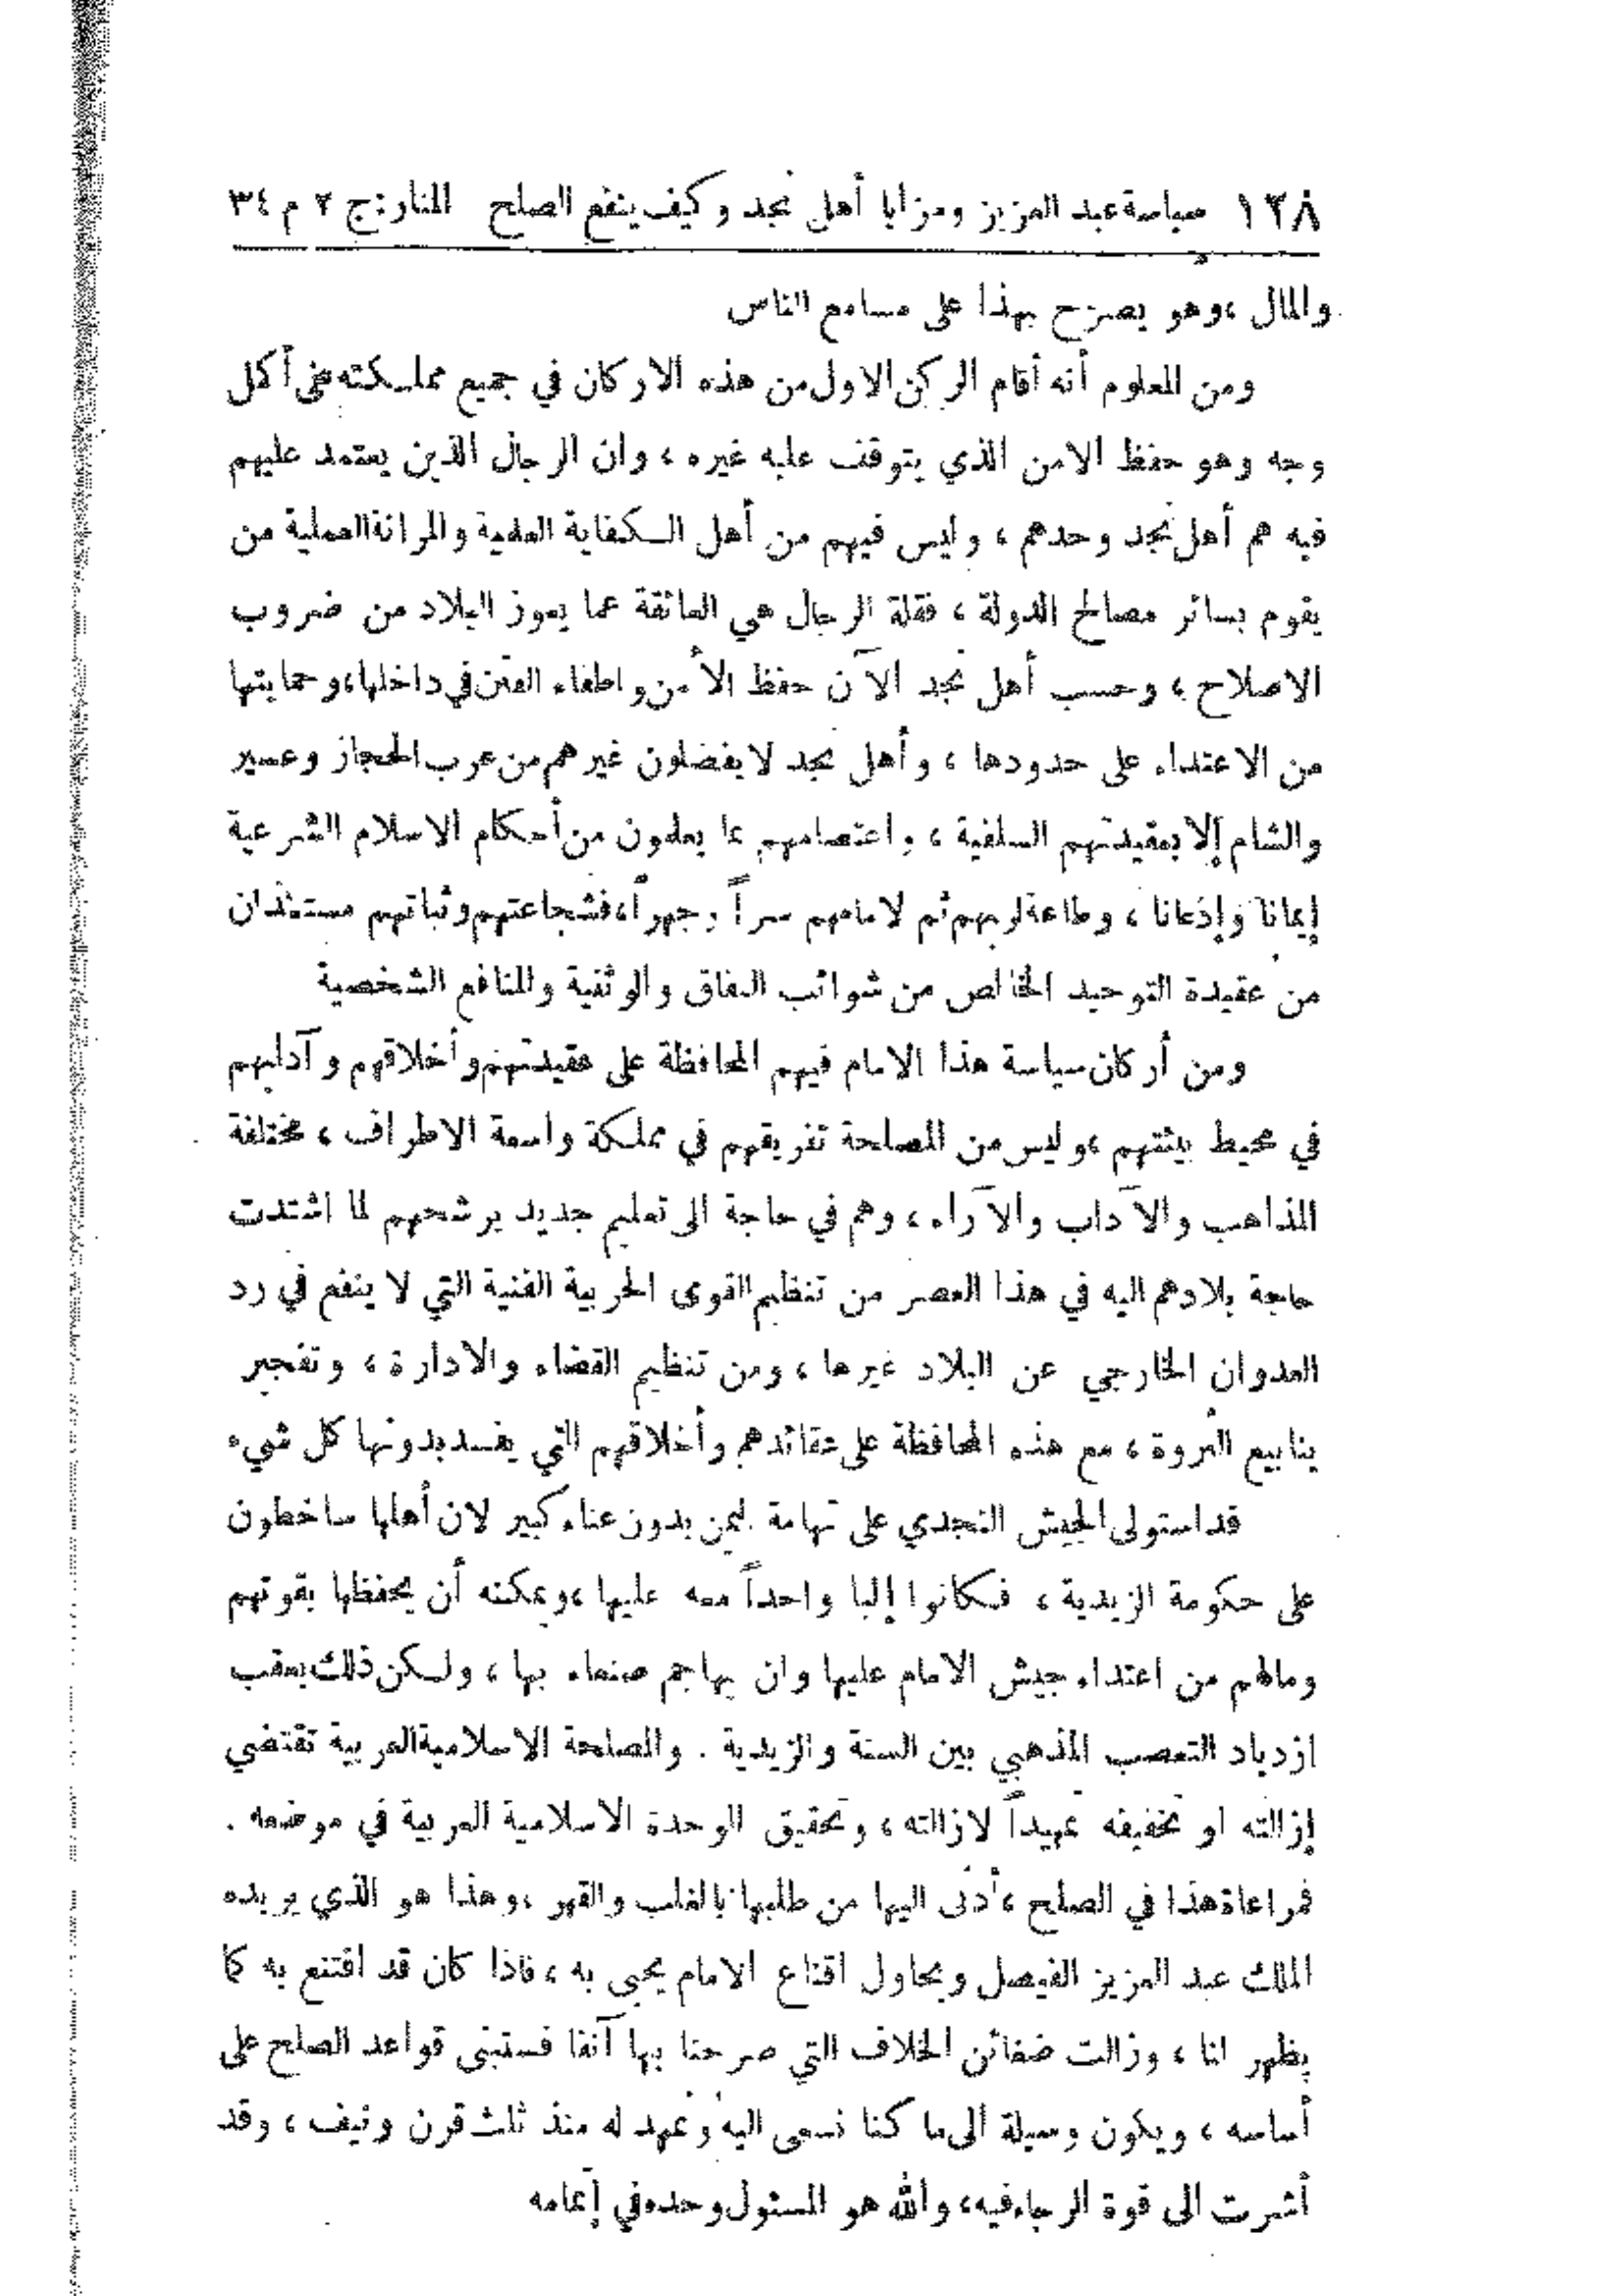 ١٢٨ سياسة عبد العزيز ومزايا أهل نجد وكيف ينفع الصلح المنار: ج ٢ م ٣٤
والمال ، وهو يصرح بهذا على مسامع الناس
ومن المعلوم أنه أقام الركن الاول من هذه الاركان في جميع مملكته على أكمل
وجه وهو حفظ الامن الذي يتوقف عليه غيره ، وان الرجال الذين يعتمد عليهم
فيه هم أهل نجد وحدهم ، وليس فيهم من أهل الكفاية العلمية والمرانة العملية من
يقوم بسائر مصالح الدولة ، فقلة الرجال هي العائقة عما يعوز البلاد من ضروب
الاصلاح ، وحسب أهل نجد الآن حفظ الأمن واطفاء الفتن في داخلها ، وحمايتها
من الاعتداء على حدودها ، وأهل نجد لا يفضلون غيرهم من عرب الحجاز وعسير
والشام إلا بعقيدتهم السلفية ، واعتصامهم بما يعلمون من أحكام الاسلام الشرعية
إيمانا وإذعانا ، وطاعة لربهم ثم لامامهم سراً وجهراً ، فشجاعتهم وثباتهم مستمدان
من عقيدة التوحيد الخالص من شوائب النفاق والوثنية والمنافع الشخصية
ومن أركان سياسة هذا الامام فيهم المحافظة على عقيدتهم وأخلاقهم وآدابهم
في محيط بيئتهم ، وليس من المصلحة تفريقهم في مملكة واسعة الاطراف ، مختلفة
المذاهب والآداب والآراء ، وهم في حاجة الى تعليم جديد يرشحهم لما اشتدت
حاجة بلادهم اليه في هذا العصر من تنظيم القوى الحربية الفنية التي لا ينفع في رد
العدوان الخارجي عن البلاد غيرها ، ومن تنظيم القضاء والادارة ، وتفجير
ينابيع الثروة ، مع هذه المحافظة على عقائدهم وأخلاقهم التي يفسد بدونها كل شيء
قد استولى الجيش النجدي على تهامة اليمن بدون عناء كبير لان أهلها ساخطون
على حكومة الزيدية ، فكانوا إلبا واحداً معه عليها ، ويمكنه أن يحفظها بقوتهم
ومالهم من اعتداء جيش الامام عليها وان يهاجم صنعاء بها ، ولكن ذلك يعقب
ازدياد التعصب المذهبي بين السنة والزيدية . والمصلحة الاسلامية العربية تقتضي
إزالته او تخفيفه تمهيداً لازالته ، وتحقيق الوحدة الاسلامية العربية في موضعه .
فمراعاة هذا في الصلح ، أدنى اليها من طلبها بالغلب والقهر ، وهذا هو الذي يريده
الملك عبد العزيز الفيصل ويحاول اقناع الامام يحيى به ، فاذا كان قد اقتنع به كما
يظهر لنا ، وزالت ضغائن الخلاف التي صرحنا بها آنفا فستبنى قواعد الصلح على
أساسه ، ويكون وسيلة الى ما كنا نسعى اليه ونمهد له منذ ثلث قرن ونيف ، وقد
أشرت الى قوة الرجاء فيه ، والله هو المسئول وحده في إتمامه